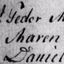 Pedor M
Maren
Daniel